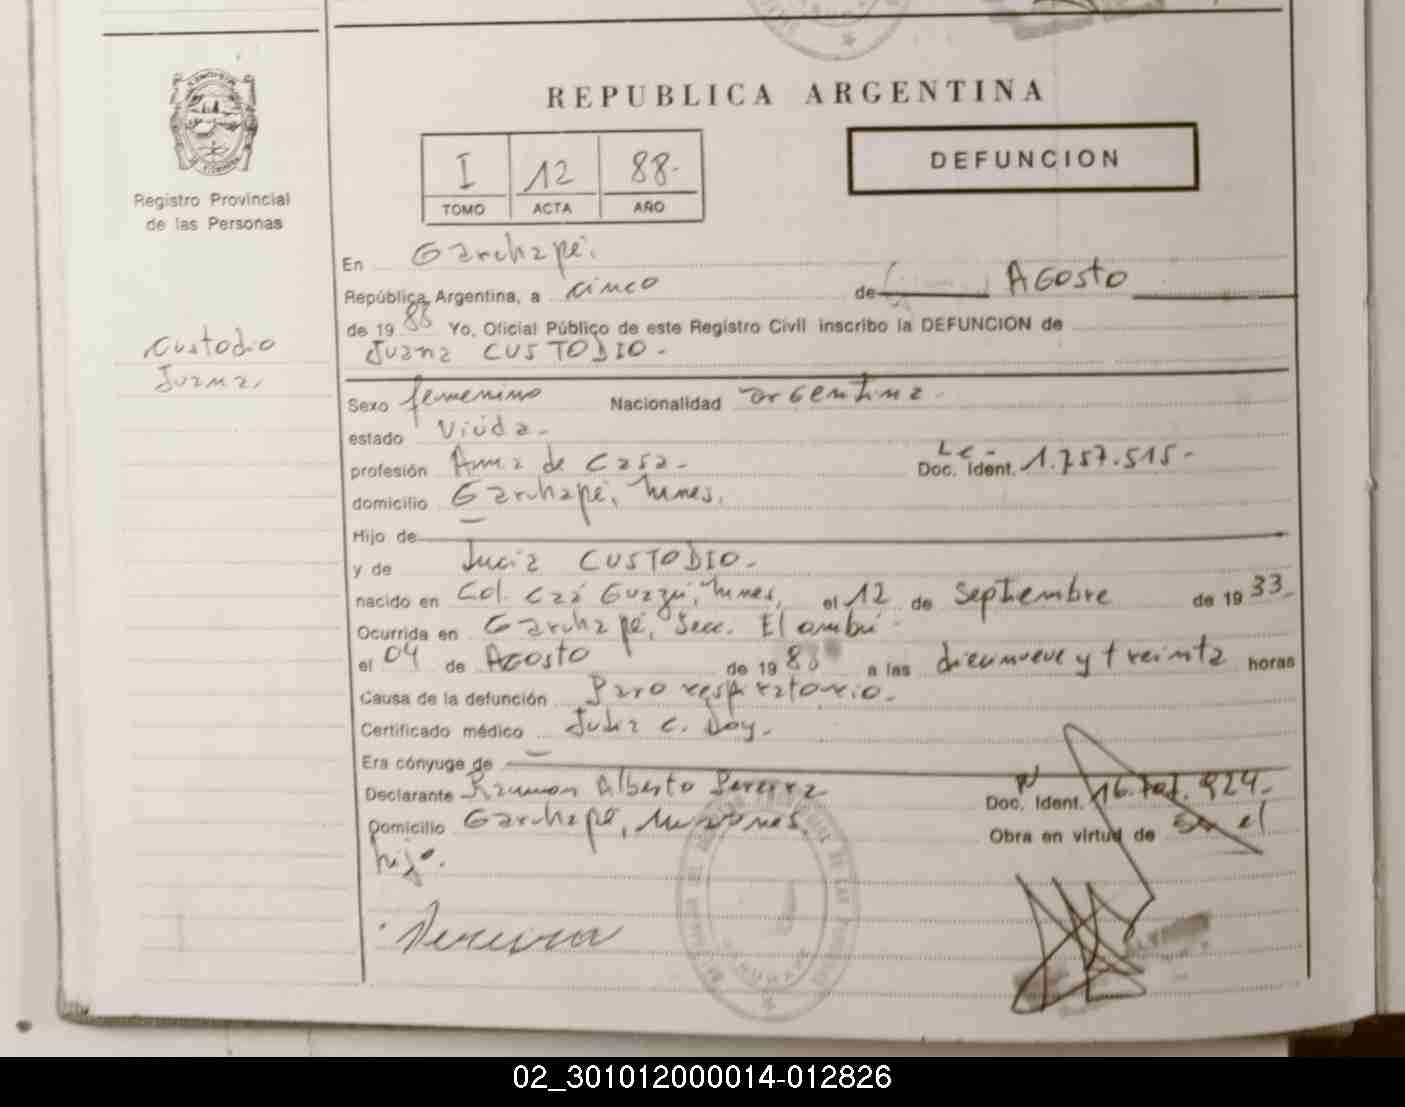 REPUBLICA ARGENTINA
I 12 88-
TOMO ACTA AÑO
DEFUNCION
Registro Provincial
de las Personas
Custodio
Juana
En Garuhapé.
República Argentina, a cinco de Agosto
de 1988 Yo, Oficial Público de este Registro Civil inscribo la DEFUNCION de
Juana CUSTODIO -
Sexo femenino Nacionalidad argentina -
estado Viuda -
profesión Ama de Casa - LC - Doc. Ident. 1.757.515-
domicilio Garuhapé,
Hijo de
y de Lucia CUSTODIO -
nacido en Col. Caá Guazú, el 12 de Septiembre de 1933-
Ocurrida en Garuhapé, Secc. El ombú -
el 04 de Agosto de 1988 a las diecinueve y treinta horas
Causa de la defunción Paro respiratorio -
Certificado médico Julia C.
Era cónyuge de
Declarante Ramon Alberto Pereyra Doc. Ident. 924-
Domicilio Garuhapé, Misiones, Obra en virtud de Ser el
hijo.
Pereyra
02_301012000014-012826